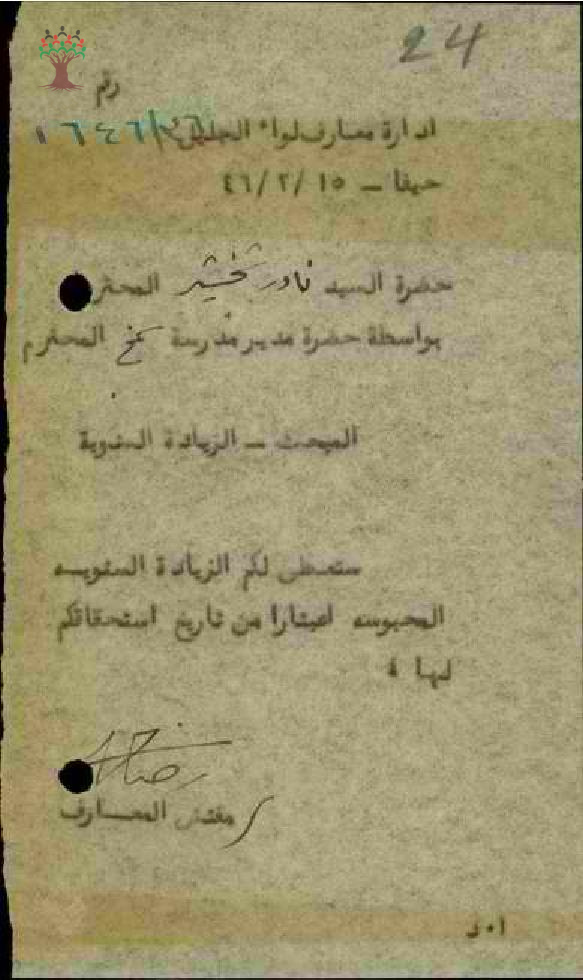 24
رقم
ادارة معارف لواء الجليل ١٦٤٦/٣٦
حيفا – ١٥ /٢ /٤٦
حضرة السيد نادر المحترم
بواسطة حضرة مدير مدرسة سمخ المحترم
المبحث – الزيادة السنوية
ستعطى لكم الزيادة السنويــه
المحبوسه اعتبارا من تاريخ استحقاقكم
لها ،
مفتش المعــارف